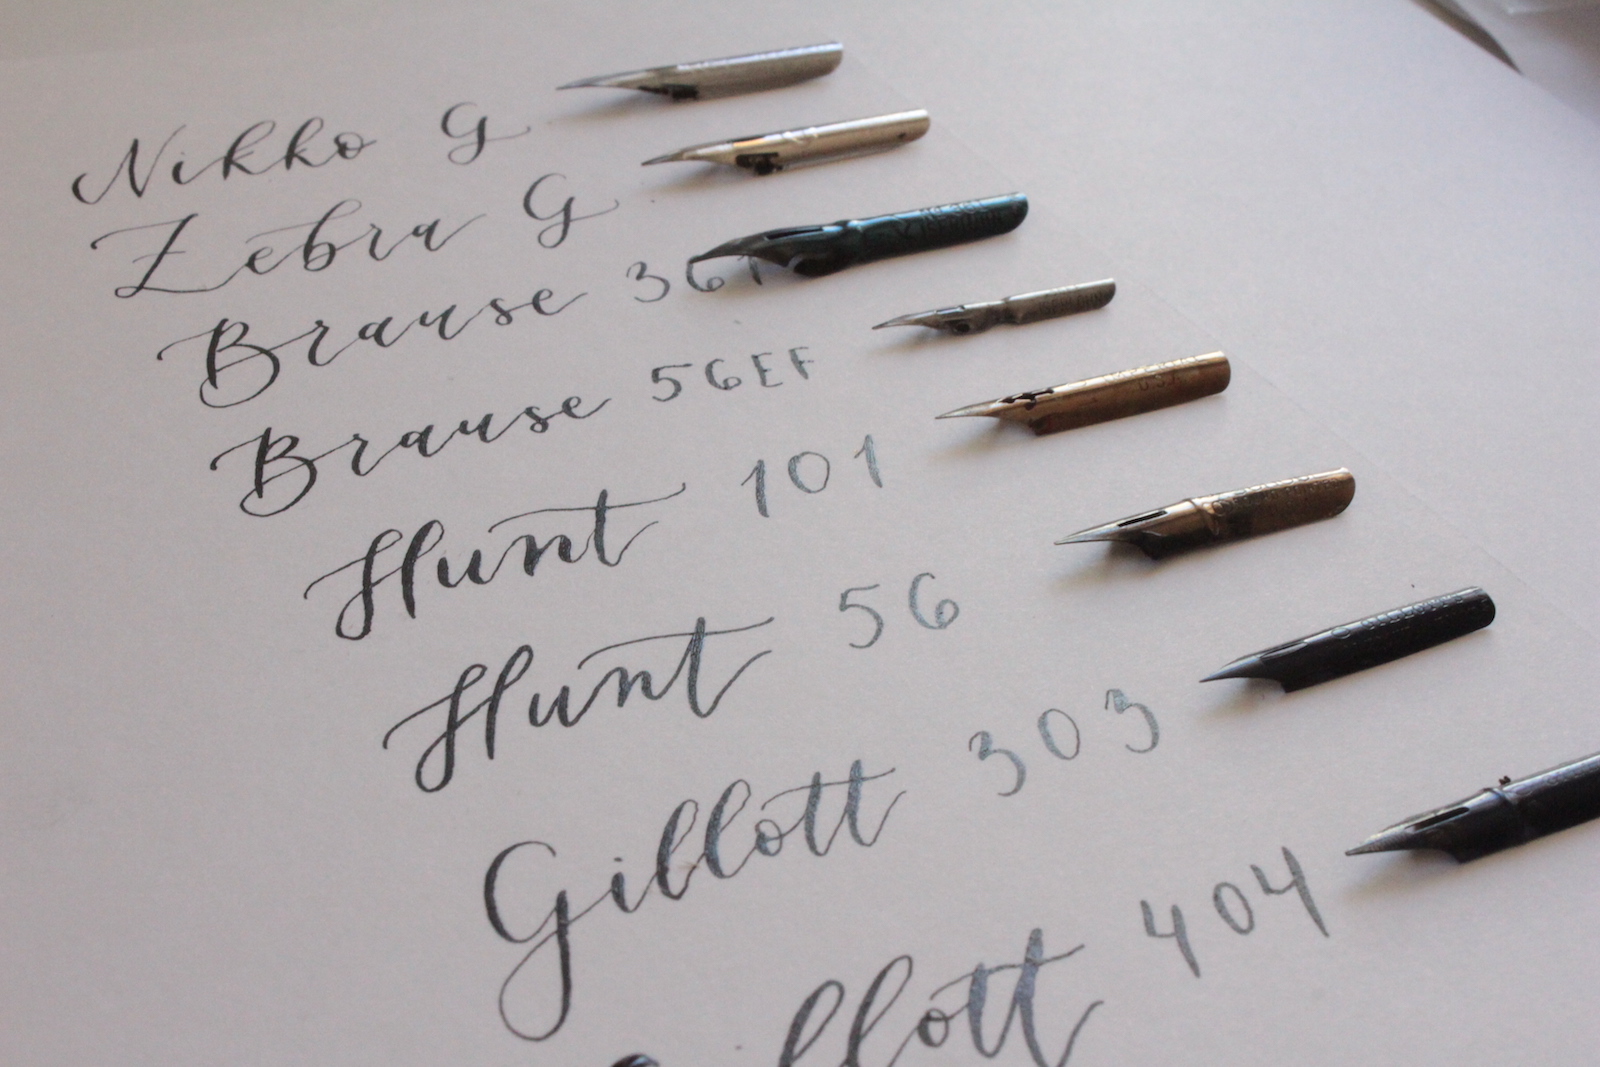 Nikko G
Zebra G
Brause 361
Brause 56EF
Hunt 101
Hunt 56
Gillott 303
404